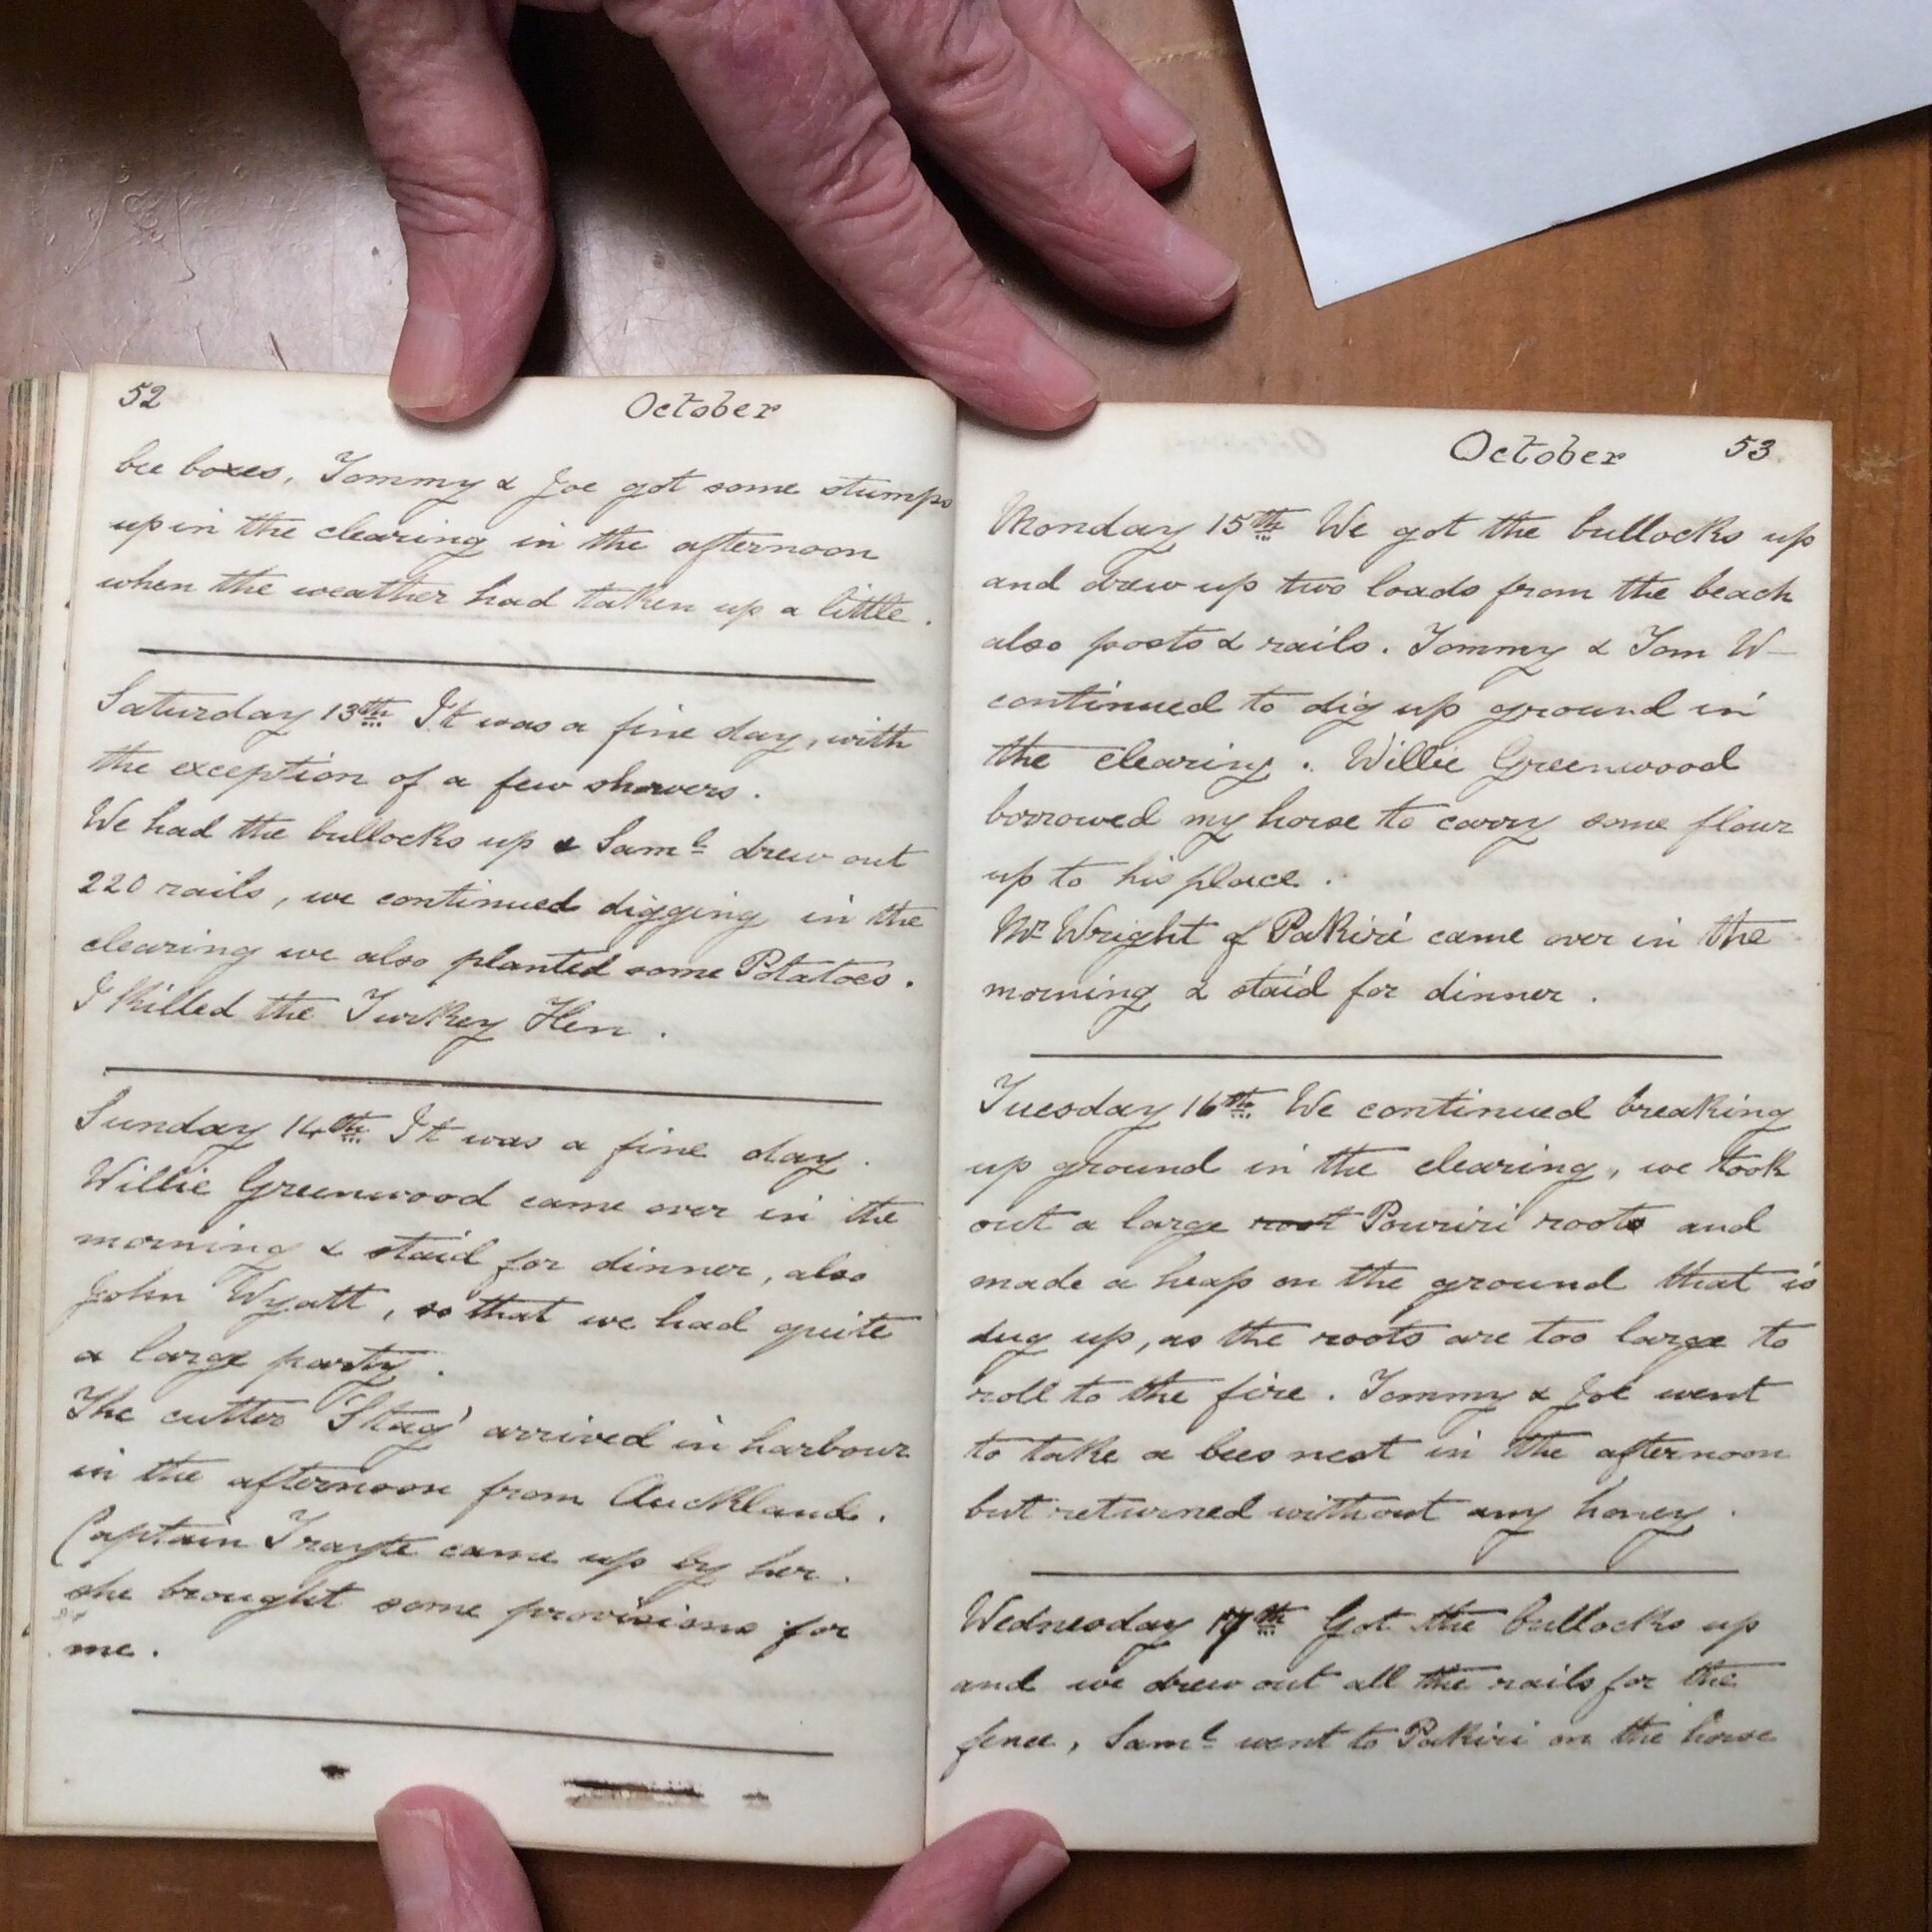 52 October
bee boxes, Tommy & Joe got some stumps
up in the clearing in the afternoon
when the weather had taken up a little.
Saturday 13th It was a fine day, with
the exception of a few showers.
We had the bullocks up & Saml drew out
220 rails, we continued digging in the
clearing we also planted some Potatoes.
I killed the Turkey Hen.
Sunday 14th It was a fine day.
Willie Greenwood came over in the
morning & staid for dinner, also
John Wyatt, so that we had quite
a large party.
The cutter 'Stag' arrived in harbour
in the afternoon from Auckland.
Captain Trayte came up by her.
she brought some provisions for
me.
October 53
Monday 15th We got the bullocks up
and drew up two loads from the beach
also posts & rails. Tommy & Tom W—
continued to dig up ground in
the clearing. Willie Greenwood
borrowed my horse to carry some flour
up to his place.
Mr Wright of Pakiri came over in the
morning & staid for dinner.
Tuesday 16th We continued breaking
up ground in the clearing, we took
out a large root Powriri roots and
made a heap on the ground that is
dug up, as the roots are too large to
roll to the fire. Tommy & Joe went
to take a bees nest in the afternoon
but returned without any honey.
Wednesday 17th Got the bullocks up
and we drew out all the rails for the
fence, Saml went to Pakiri on the horse